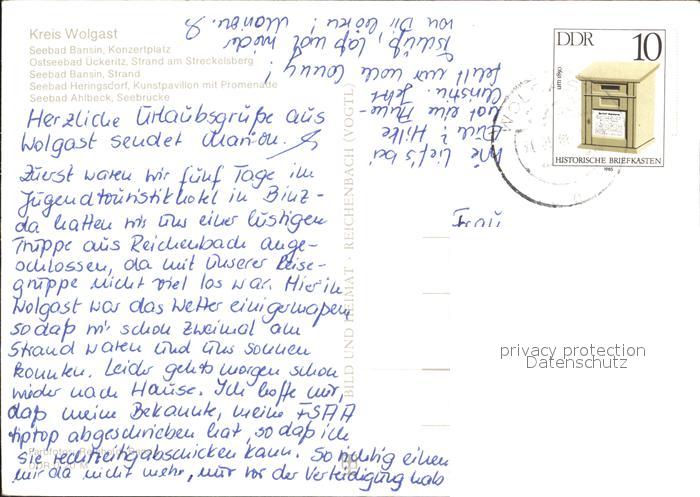 Kreis Wolgast
Seebad Bansin, Konzertplatz
Ostseebad Ückeritz, Strand am Streckelsberg
Seebad Bansin, Strand
Seebad Heringsdorf, Kunstpavillon mit Promenade
Seebad Ahlbeck, Seebrücke
Herzliche Urlaubsgrüße aus
Wolgast sendet Marion.
Zuerst waren wir fünf Tage im
Jugendtouristikhotel in Binz-
da hatten wir uns einer lustigen
Truppe aus Reichenbach ange-
schlossen, da mit unserer Reise-
gruppe nicht viel los war. Hier in
Wolgast war das Wetter einigermaßen,
so daß wir schon zweimal am
Strand waren und uns sonnen
konnten. Leider geht's morgen schon
wieder nach Hause. Ich hoffe nur,
daß meine Bekannte, meine
tiptop abgeschrieben hat, so daß ich
sie rechtzeitig abschicken kann. So richtig einen
mir da nicht mehr, nur vor der Verteidigung hab
Wie lief's bei
Euch? Hilke
hat eine
Christin. Jetzt
fehlt nur noch Conny!
Tschüß, laß mal wieder
von Dir hören! Marion.
BILD UND HEIMAT · REICHENBACH (VOGTL)
DDR 10
um 1890
HISTORISCHE BRIEFKASTEN
1985
WOL
privacy protection
Datenschutz